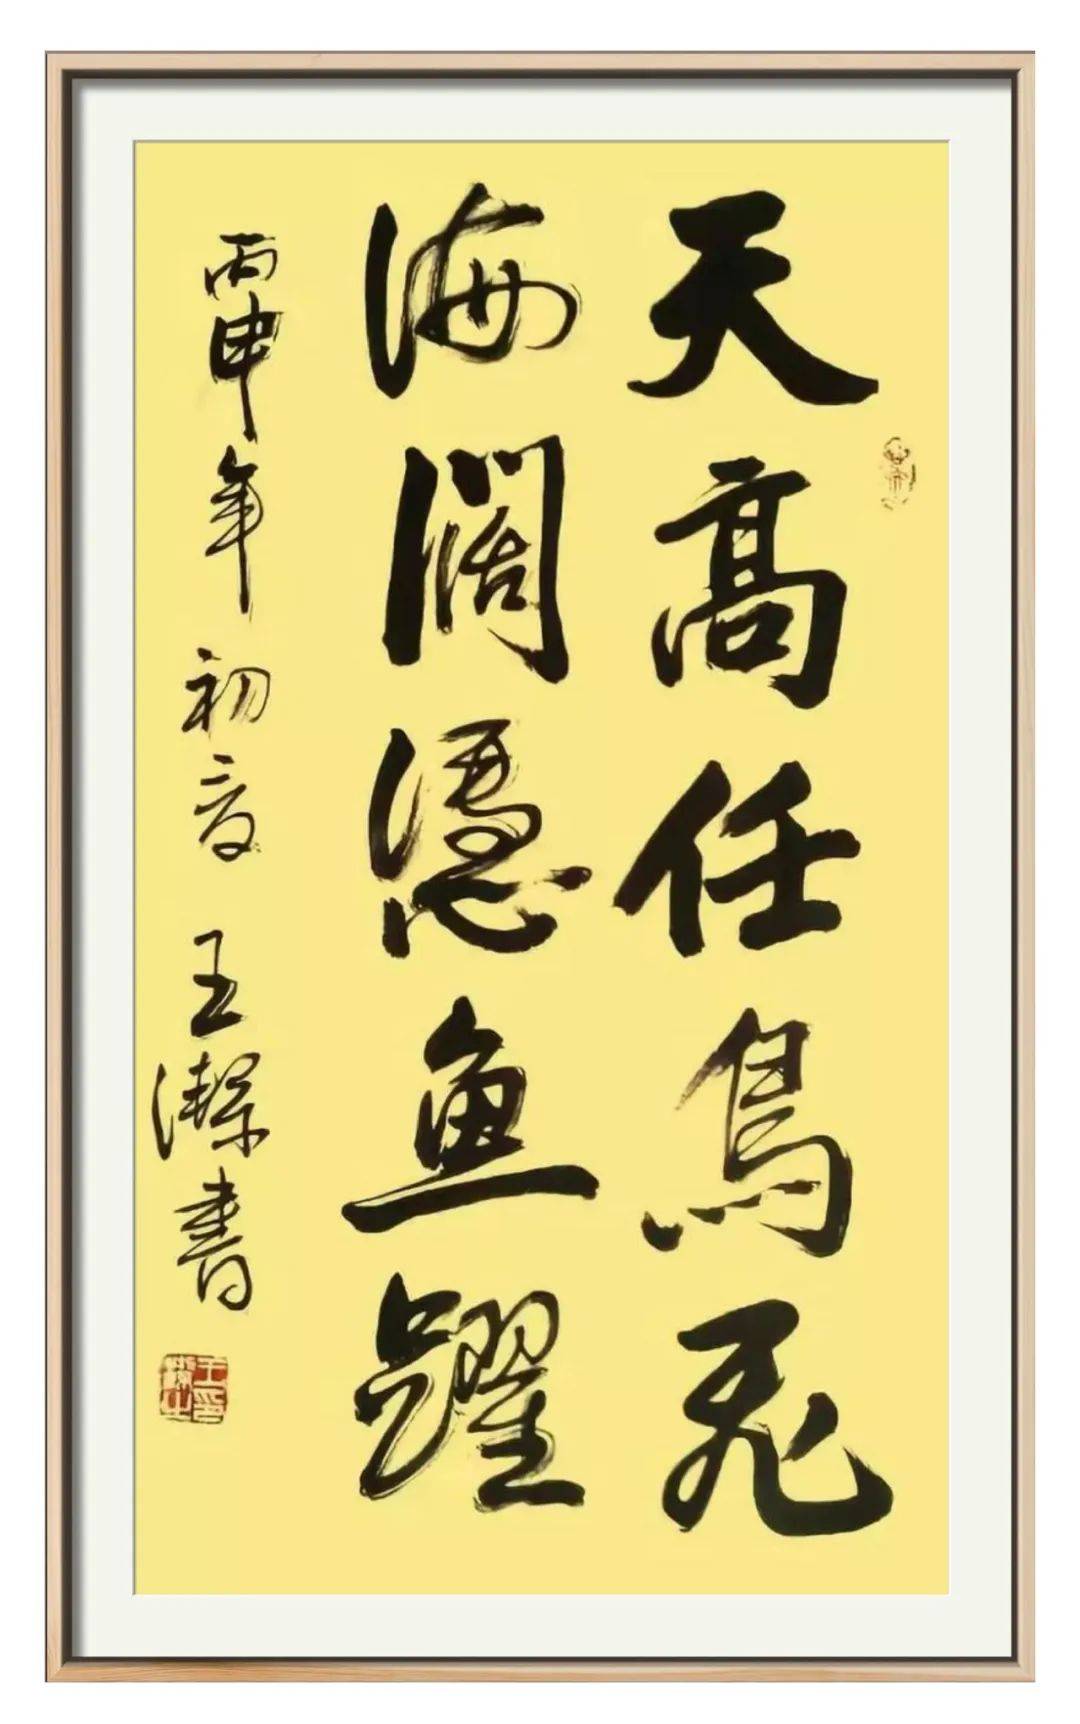 天高任鳥飛
海闊憑鱼躍
丙申年 初夏 王潔書